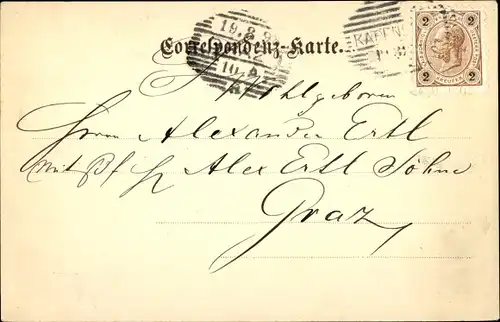 Correspondenz-Karte.
19.8.9
10.
KAPFEN
2 2
2 2
Wohlgeboren
Herrn Alexander Ertl
Alex Ertl Söhne
Graz